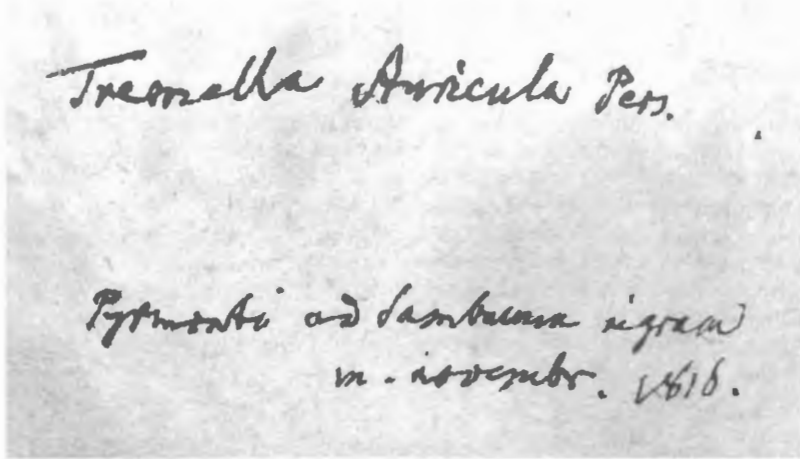 Tremella Auricula Pers.
Pyrmonti ad Sambucum nigram
m. novembr. 1816.